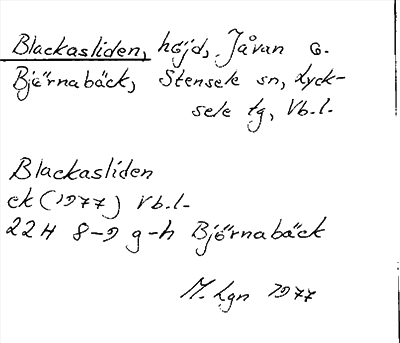 Blackasliden, höjd, Jåvan o.
Bjørnabäck, Stensele sn, Lyck-
sele tg, Vb.l.
Blackasliden
ek (1977) Vb.l.
22H 8-9 g-h Björnabäck
M. Lgn 1977